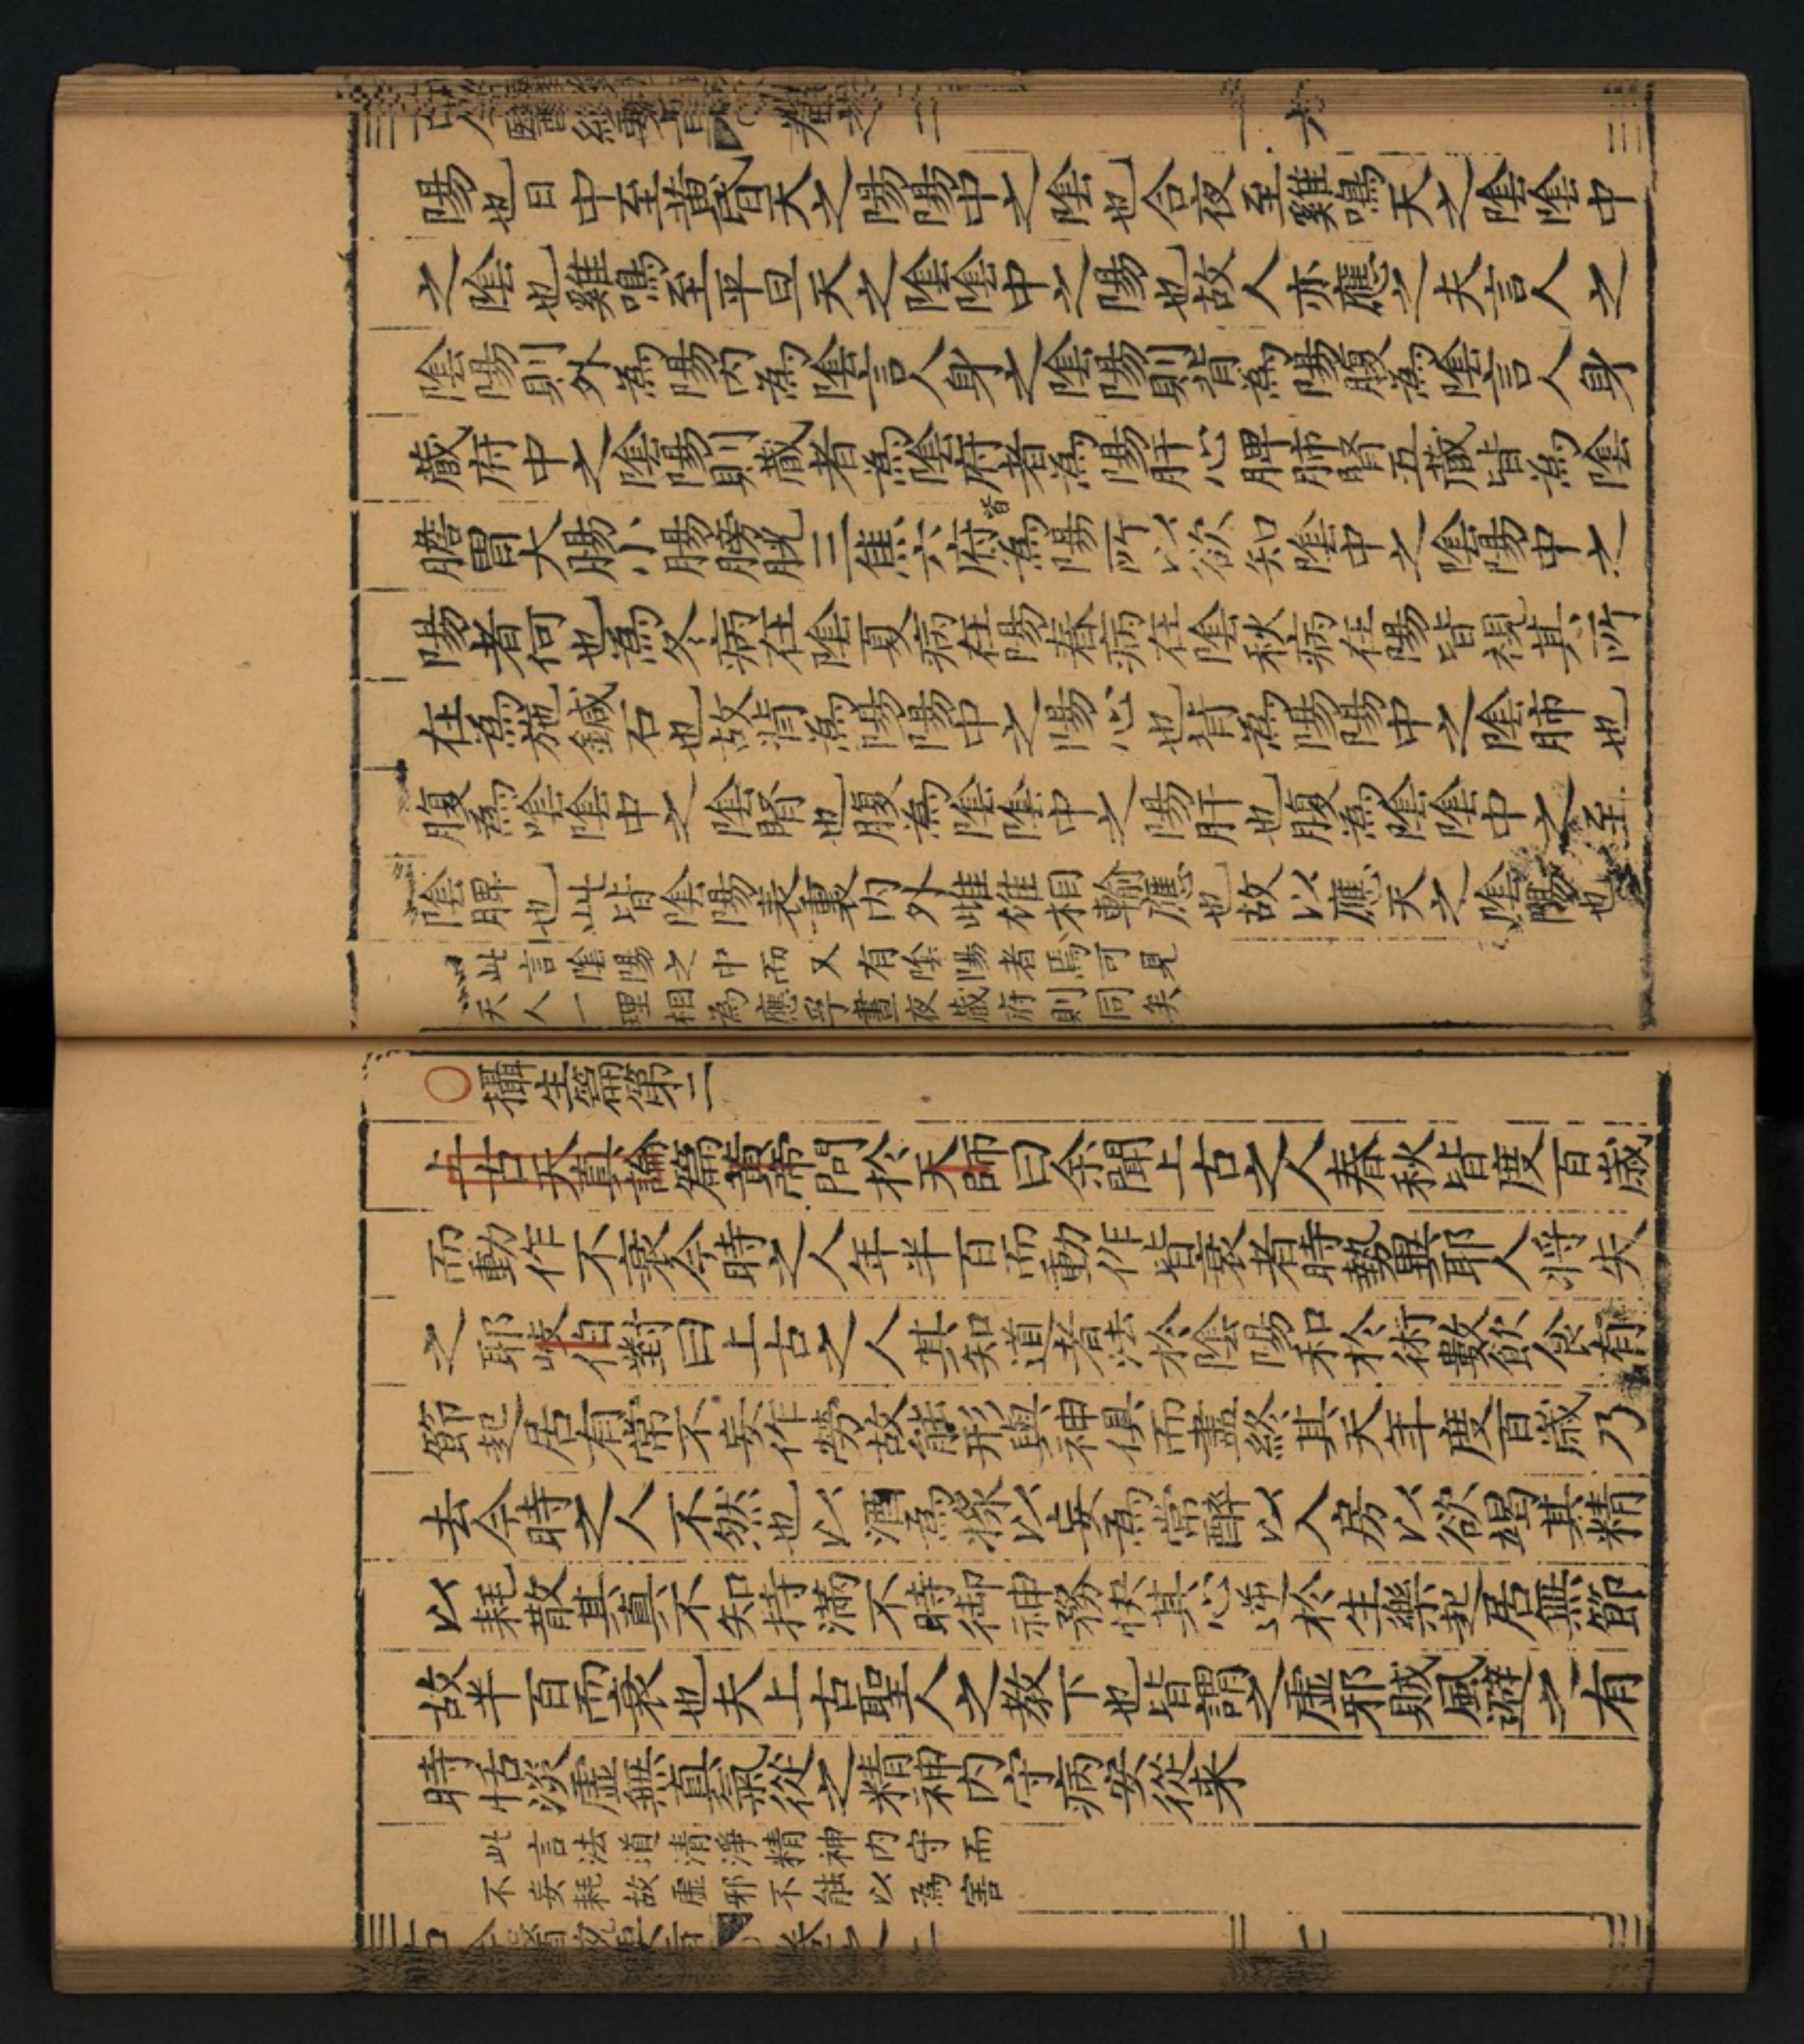 卷之二 六
陽也日中至黃昏天之陽陽中之陰也合夜至雞鳴天之陰陰中
之陰也雞鳴至平旦天之陰陰中之陽也故人亦應之夫言人之
陰陽則外為陽內為陰言人身之陰陽則背為陽腹為陰言人身
藏府中之陰陽則藏者為陰府者為陽肝心脾肺腎五藏皆為陰
膽胃大腸小腸膀胱三焦六府皆為陽所以欲知陰中之陰陽中之
陽者何也為冬病在陰夏病在陽春病在陰秋病在陽皆視其所
在為施鍼石也故背為陽陽中之陽心也背為陽陽中之陰肺也
腹為陰陰中之陰腎也腹為陰陰中之陽肝也腹為陰陰中之至
陰脾也此皆陰陽表裏內外雌雄相輸應也故以應天之陰陽也
此言陰陽之中而又有陰陽者焉可見
天人一理相為應乎晝夜藏府則同矣
○攝生篇第二
上古天真論篇黃帝問於天師曰余聞上古之人春秋皆度百歲
而動作不衰今時之人年半百而動作皆衰者時勢異耶人將失
之耶岐伯對曰上古之人其知道者法於陰陽和於術數飲食有
節起居有常不妄作勞故能形與神俱而盡終其天年度百歲乃
去今時之人不然也以酒為漿以妄為常醉以入房以欲竭其精
以耗散其真不知持滿不時御神務快其心逆於生樂起居無節
故半百而衰也夫上古聖人之教下也皆謂之虛邪賊風避之有
時恬淡虛無真氣從之精神內守病安從来
此言法道清淨精神內守而
不妄耗故虛邪不能以為害
卷之二 七